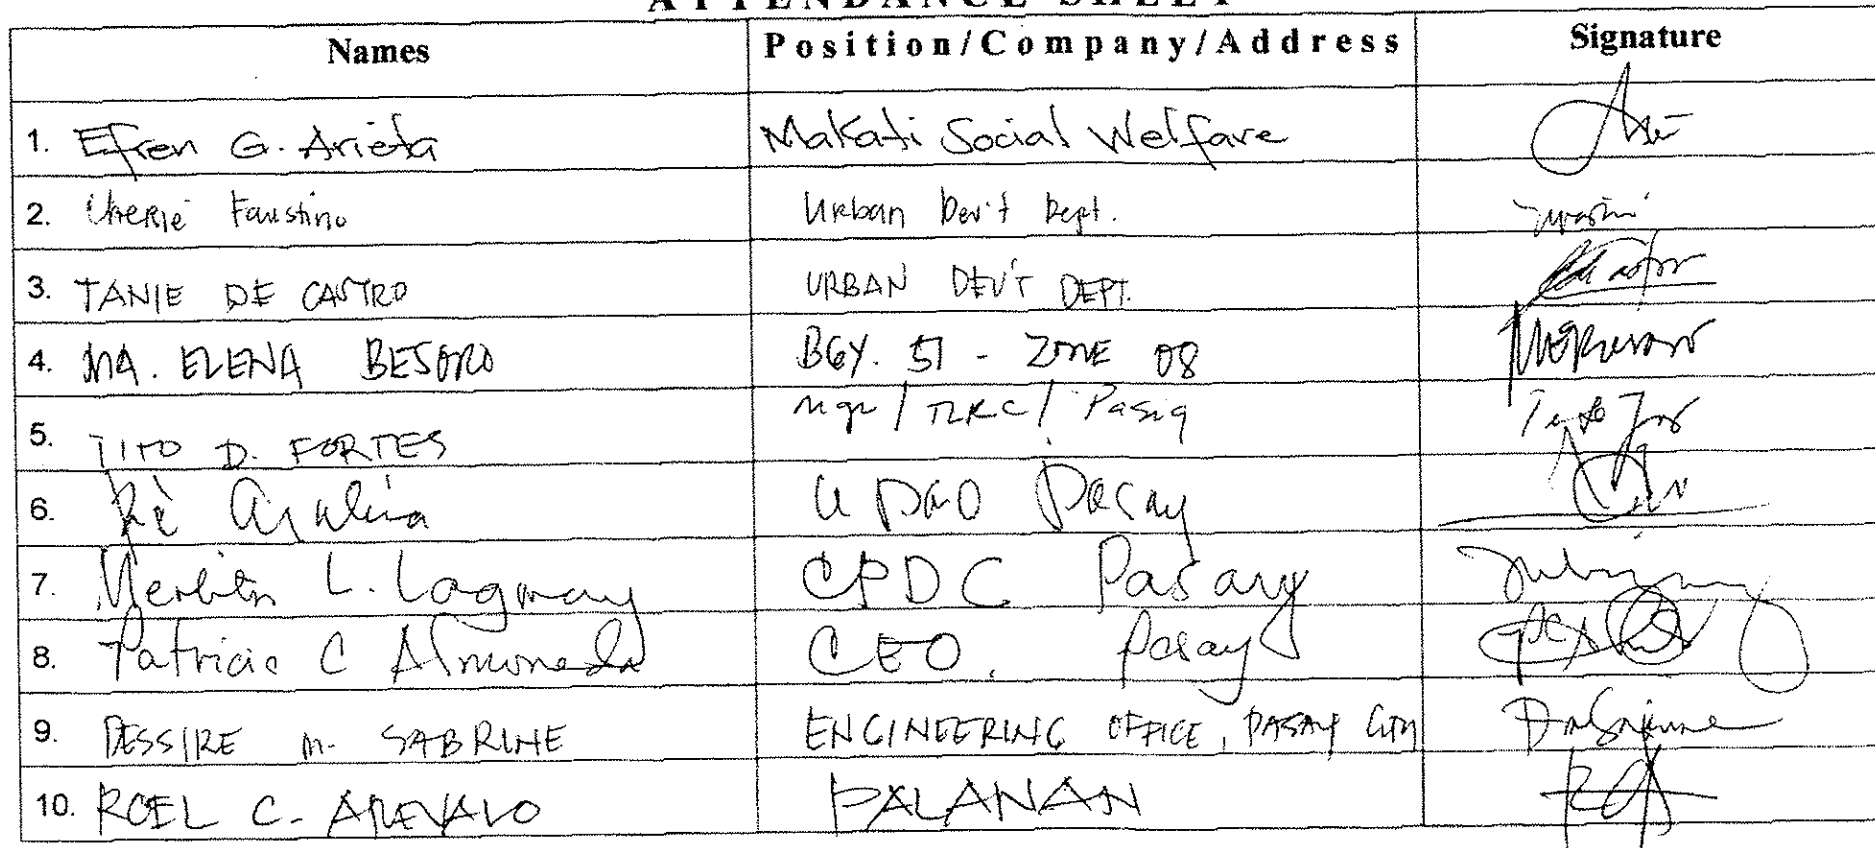 ATTENDANCE SHEET
Names Position/Company/Address Signature
1. Efren G. Arieta Makati Social Welfare
2. Cherie Faustino Urban Dev't Dept.
3. TANIE DE CASTRO URBAN DEV'T DEPT.
4. MA. ELENA BESORO BGY. 51 - ZONE 08
5. TITO D. FORTES mgr / TLRC / Pasig
6. Pasay
7. L. Lagmay CPDC Pasay
8. Patricio C Almoneda CEO. Pasay
9. DESSIRE M. SABRINE ENGINEERING OFFICE, PASAY CITY
10. ROEL C. AREVALO PALANAN